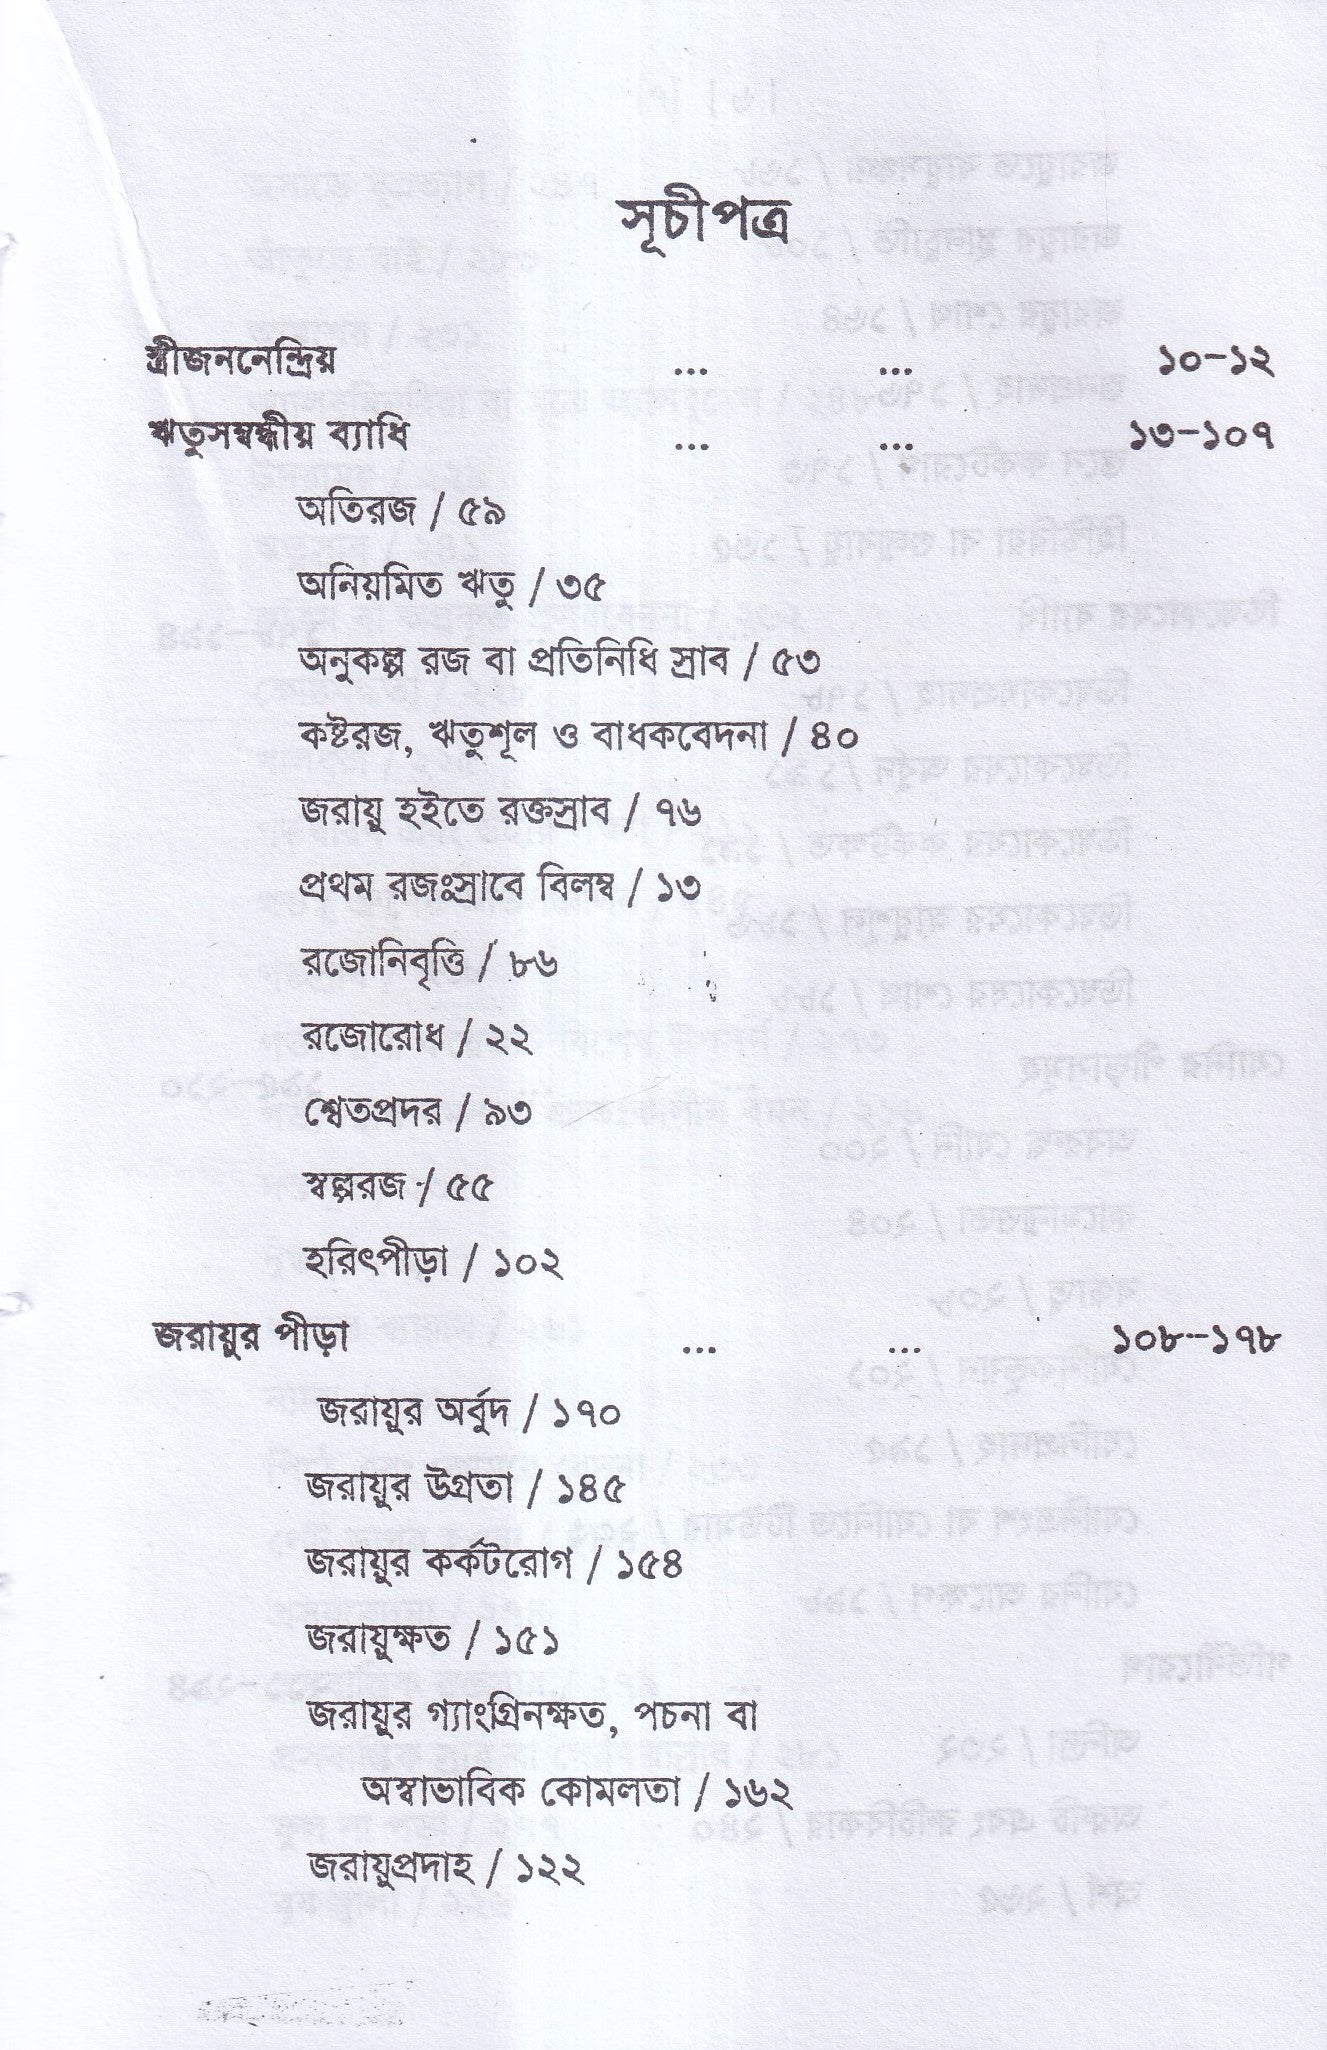 সূচীপত্র
স্ত্রীজননেন্দ্রিয় ... ... ১০–১২
ঋতুসম্বন্ধীয় ব্যাধি ... ... ১৩–১০৭
অতিরজ / ৫৯
অনিয়মিত ঋতু / ৩৫
অনুকল্প রজ বা প্রতিনিধি স্রাব / ৫৩
কষ্টরজ, ঋতুশূল ও বাধকবেদনা / ৪০
জরায়ু হইতে রক্তস্রাব / ৭৬
প্রথম রজঃস্রাবে বিলম্ব / ১৩
রজোনিবৃত্তি / ৮৬
রজোরোধ / ২২
শ্বেতপ্রদর / ৯৩
স্বল্পরজ / ৫৫
হরিৎপীড়া / ১০২
জরায়ুর পীড়া ... ... ১০৮–১৭৮
জরায়ুর অর্বুদ / ১৭০
জরায়ুর উগ্রতা / ১৪৫
জরায়ুর কর্কটরোগ / ১৫৪
জরায়ুক্ষত / ১৫১
জরায়ুর গ্যাংগ্রিনক্ষত, পচনা বা
অস্বাভাবিক কোমলতা / ১৬২
জরায়ুপ্রদাহ / ১২২